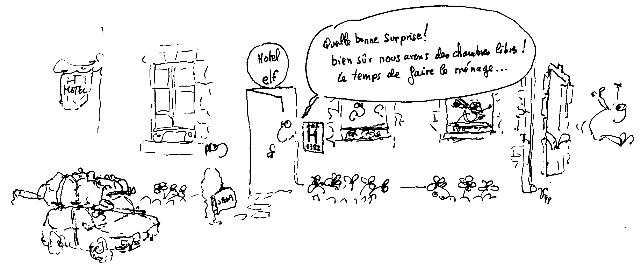 Quelle bonne surprise!
bien sûr nous avons des chambres libres!
le temps de faire le ménage...
Hotel
elf
HOTEL
H